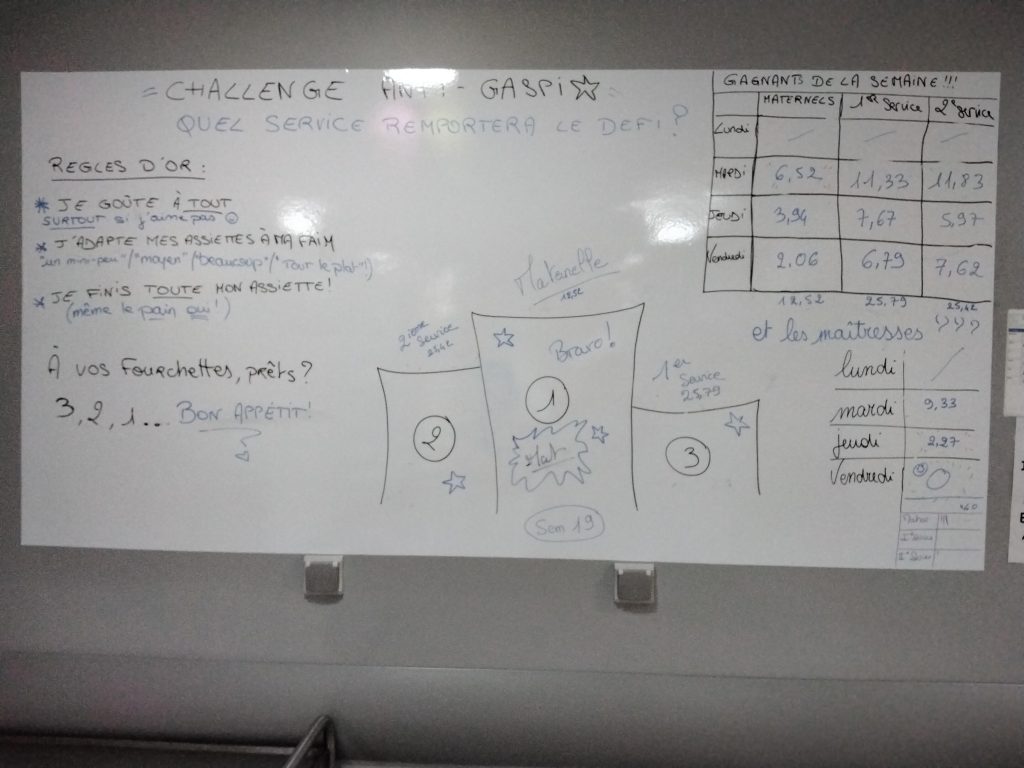 = CHALLENGE ANTI-GASPI
QUEL SERVICE REMPORTERA LE DEFI ?
REGLES D'OR :
* JE GOÛTE À TOUT
SURTOUT si j'aime pas
* J'ADAPTE MES ASSIETTES À MA FAIM
"un mini-peu"/"moyen"/"beaucoup"/"Tout le plat"!)
* JE FINIS TOUTE MON ASSIETTE !
(même le pain oui !)
À VOS FOURCHETTES, PRÊTS ?
3, 2, 1 ... BON APPÉTIT !
GAGNANTS DE LA SEMAINE !!!
MATERNELS 1er Service 2e Service
Lundi / / /
MARDI 6,52 11,33 11,83
JEUDI 3,94 7,67 5,97
Vendredi 2,06 6,79 7,62
12,52 25,79 25,42
et les maîtresses ???
lundi /
mardi 9,33
jeudi 2,27
Vendredi 0
Maternelle
12,52
2ième
Service
25,42
Bravo !
1er
Service
25,79
1
2
3
Sem 19